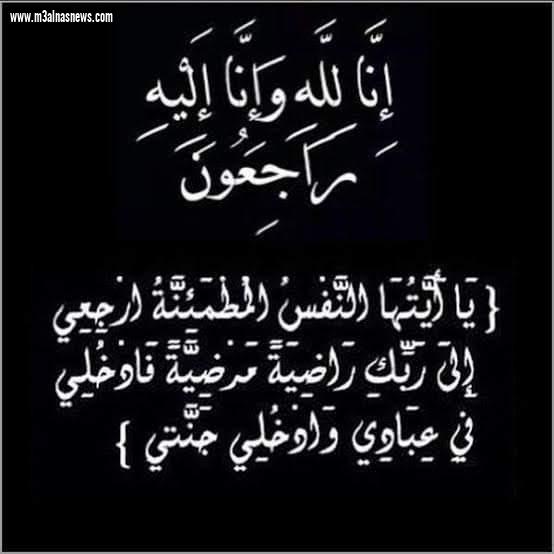 www.m3alnasnews.com
إِنَّا لله وَإِنَّا إِلَيْهِ
رَاجِعُونَ
{ يَا أَيَّتُهَا النَّفْسُ الْمُطْمَئِنَّةُ ارْجِعِي
إِلَى رَبِّكِ رَاضِيَةً مَرْضِيَّةً فَادْخُلِي
فِي عِبَادِي وَادْخُلِي جَنَّتِي }